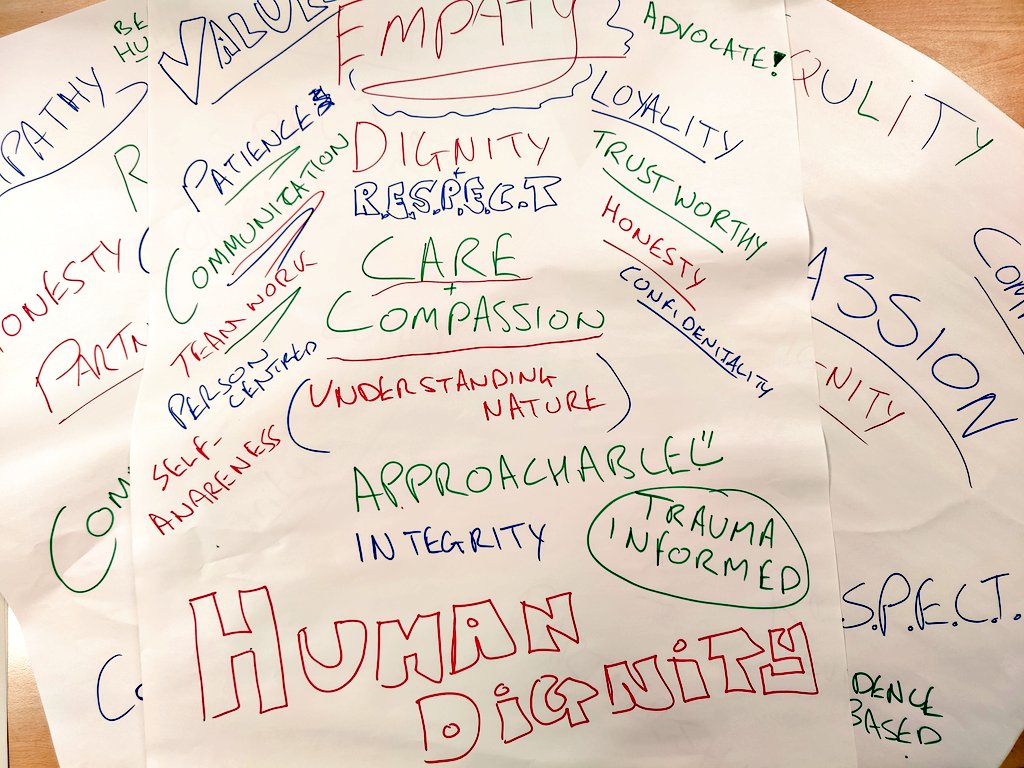 BE
HU
VALUE
EMPATY
ADVOCATE!
PATHY
PATIENCE
COMMUNICATION
TEAMWORK
PERSON
CENTRED
SELF-
AWARENESS
DIGNITY
+
R.E.S.P.E.C.T
CARE
+
COMPASSION
(UNDERSTANDING
NATURE)
APPROACHABLE
INTEGRITY
LOYALITY
TRUST WORTHY
HONESTY
CONFIDENITALITY
TRAUMA
INFORMED
HUMAN
DIGNITY
R
ONESTY
PARTN
COM
CO
QULITY
COM
ASSION
NITY
S.P.E.C.T.
DENCE
BASED